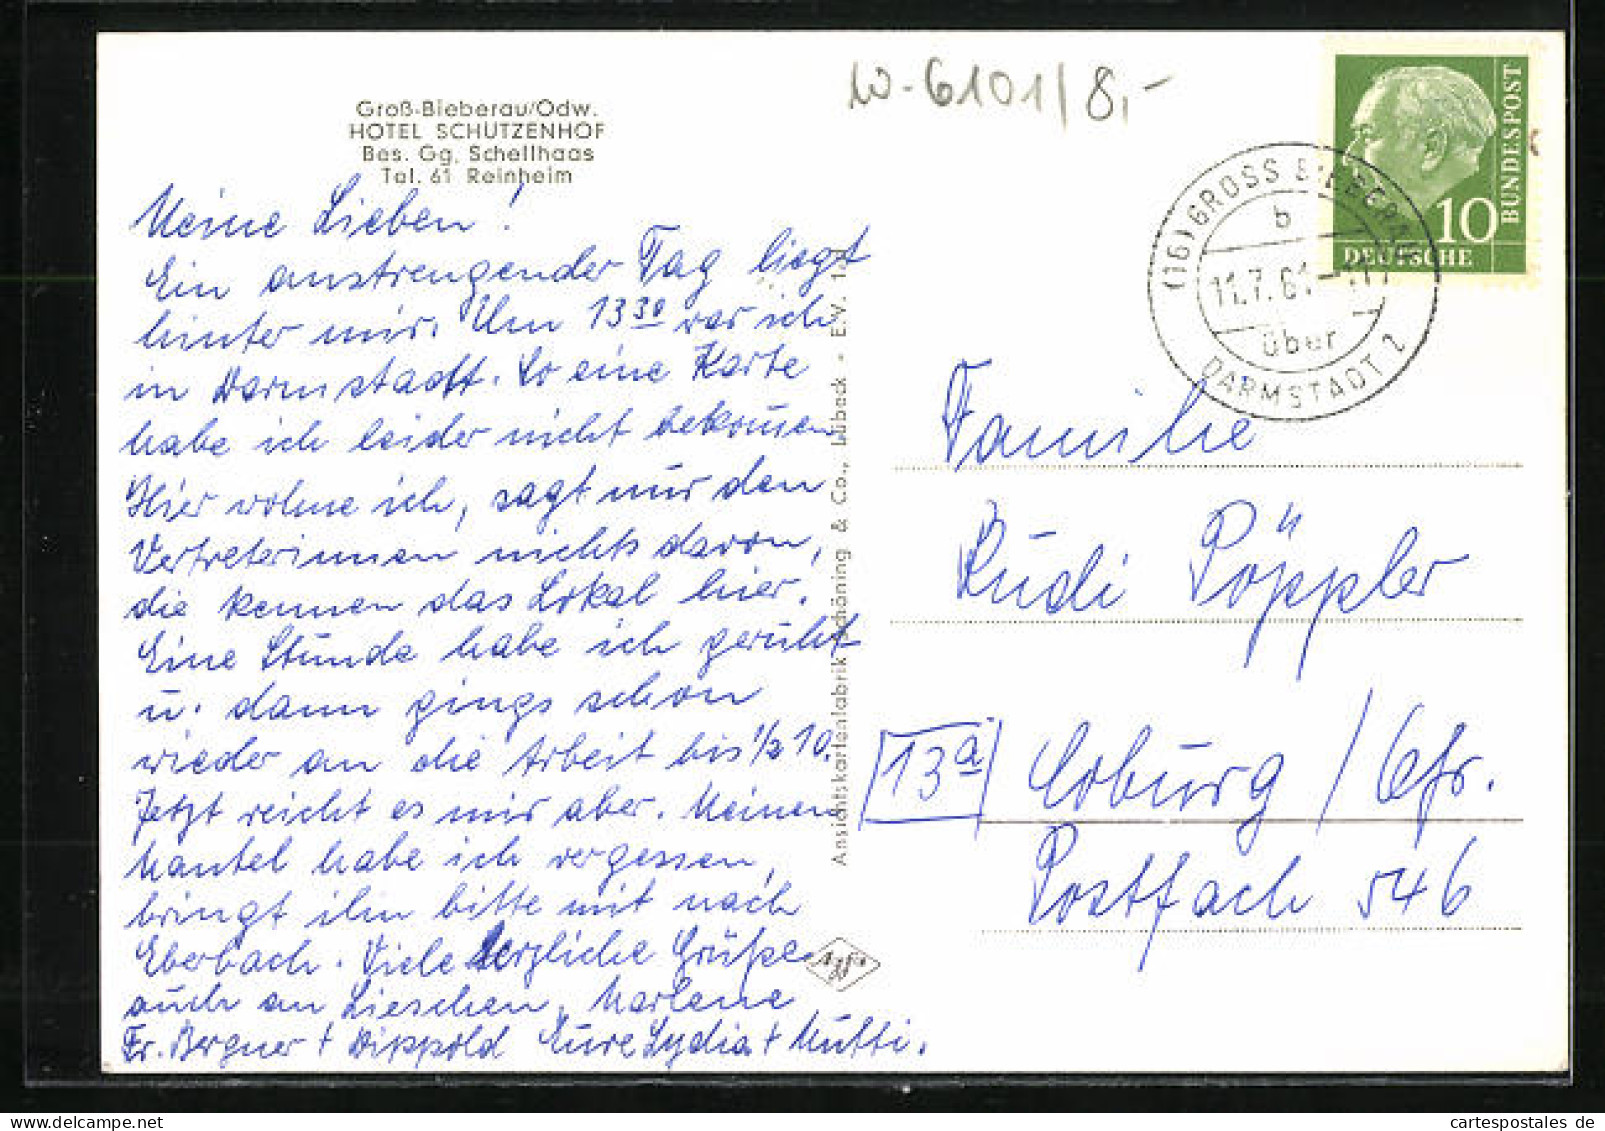 W-6101/8,-
Groß-Bieberau/Odw.
HOTEL SCHÜTZENHOF
Bes. Gg. Schellhaas
Tel. 61 Reinheim
Meine Lieben!
Ein anstrengender Tag liegt
hinter mir. Um 13 30 war ich
in Darmstadt. So eine Karte
habe ich leider nicht bekommen
Hier wohne ich, sagt nur den
Vertreterinnen nichts davon,
die kennen das Lokal hier.
Eine Stunde habe ich geruht
u. dann gings schon
wieder an die Arbeit bis 1/2 10.
Jetzt reicht es mir aber. Meinen
Mantel habe ich vergessen,
bringt ihn bitte mit nach
Eberbach. Viele herzliche Grüße
auch an Lieschen, Marlene
Fr. Bergner + Dippold Eure Lydia + Mutti.
Ansichtskartenfabrik Schöning & Co., Lübeck - E.V.
Agfa
10
DEUTSCHE
BUNDESPOST
(16) GROSS BIEBERAU
b
11.7.61
über
DARMSTADT 2
Familie
Rudi Pöppler
13a Coburg / Ofr.
Postfach 546
cartespostales.de